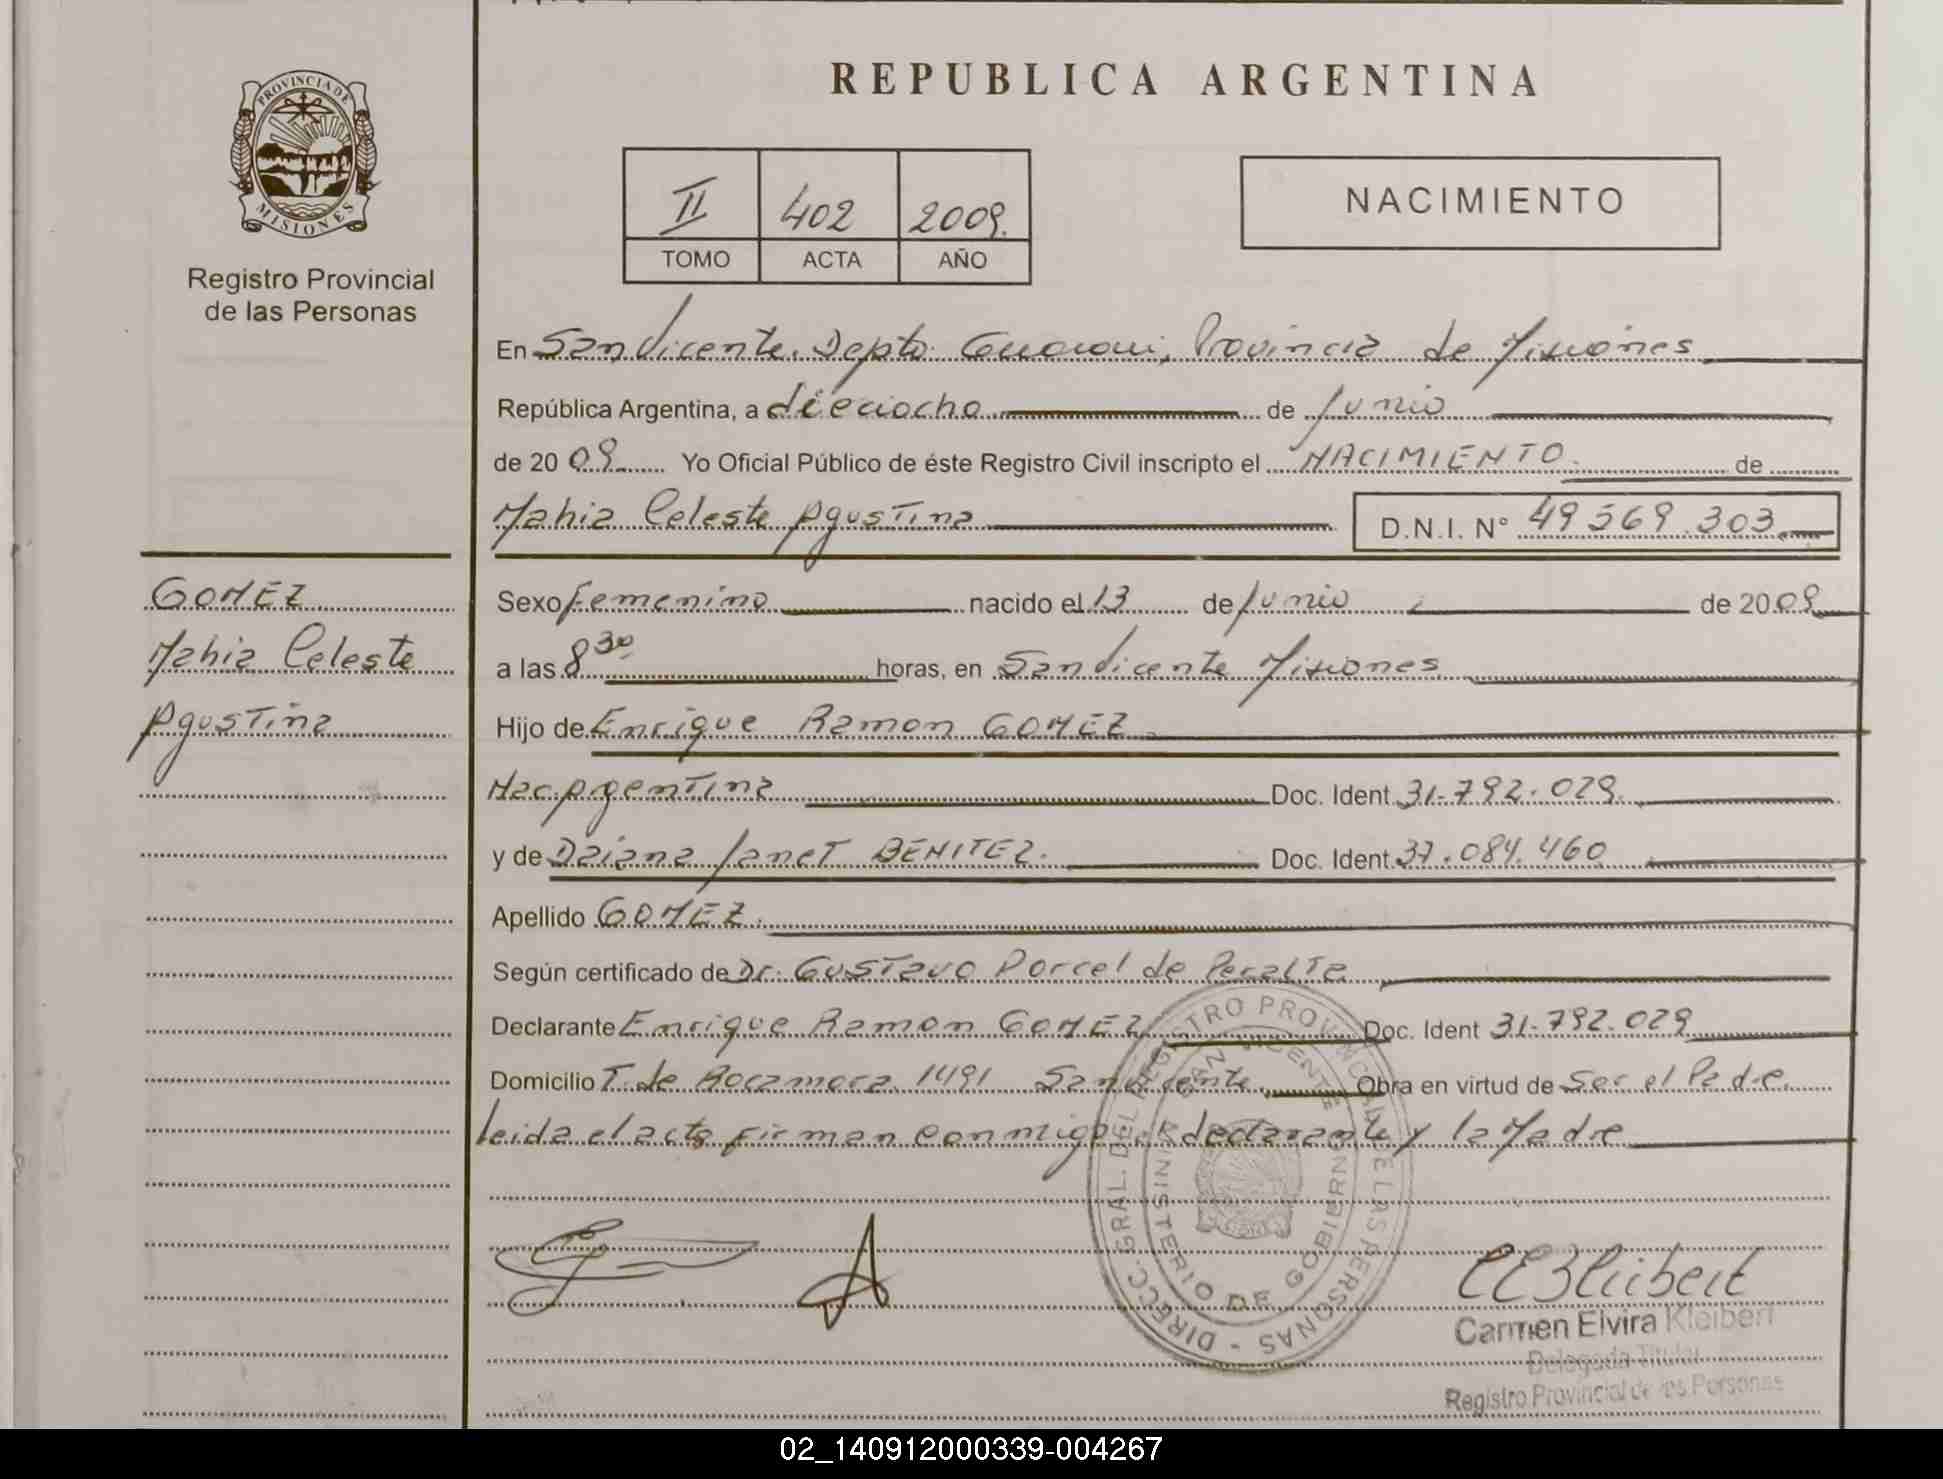 PROVINCIA DE
MISIONES
Registro Provincial
de las Personas
REPUBLICA ARGENTINA
II 402 2009.
TOMO ACTA AÑO
NACIMIENTO
En San Vicente, Depto Guarani, Provincia de Misiones
República Argentina, a dieciocho de Junio
de 2009 Yo Oficial Público de éste Registro Civil inscripto el NACIMIENTO. de
Mahia Celeste Agustina D.N.I. Nº 49 569.303
GOMEZ
Mahia Celeste
Agustina
Sexo femenino nacido el 13 de Junio de 2009
a las 8 30 horas, en San Vicente Misiones
Hijo de Enrique Ramon GOMEZ
Nac. Argentina Doc. Ident. 31.792.029.
y de Daiana Janet BENITEZ. Doc. Ident. 37.084.460
Apellido GOMEZ.
Según certificado de Dr. Gustavo Porcel de Peralta
Declarante Enrique Ramon GOMEZ Doc. Ident 31.792.029
Domicilio T. de Rocamora 1491 San Vicente, Obra en virtud de Ser el Padre.
leida el acta firman conmigo el declarante y la Madre
DIRECC. GRAL. DEL REGISTRO PROVINCIAL DE LAS PERSONAS -
SAN VICENTE
MINISTERIO DE GOBIERNO
CEKleibert
Carmen Elvira Kleibert
Delegada Titular
Registro Provincial de las Personas
02_140912000339-004267